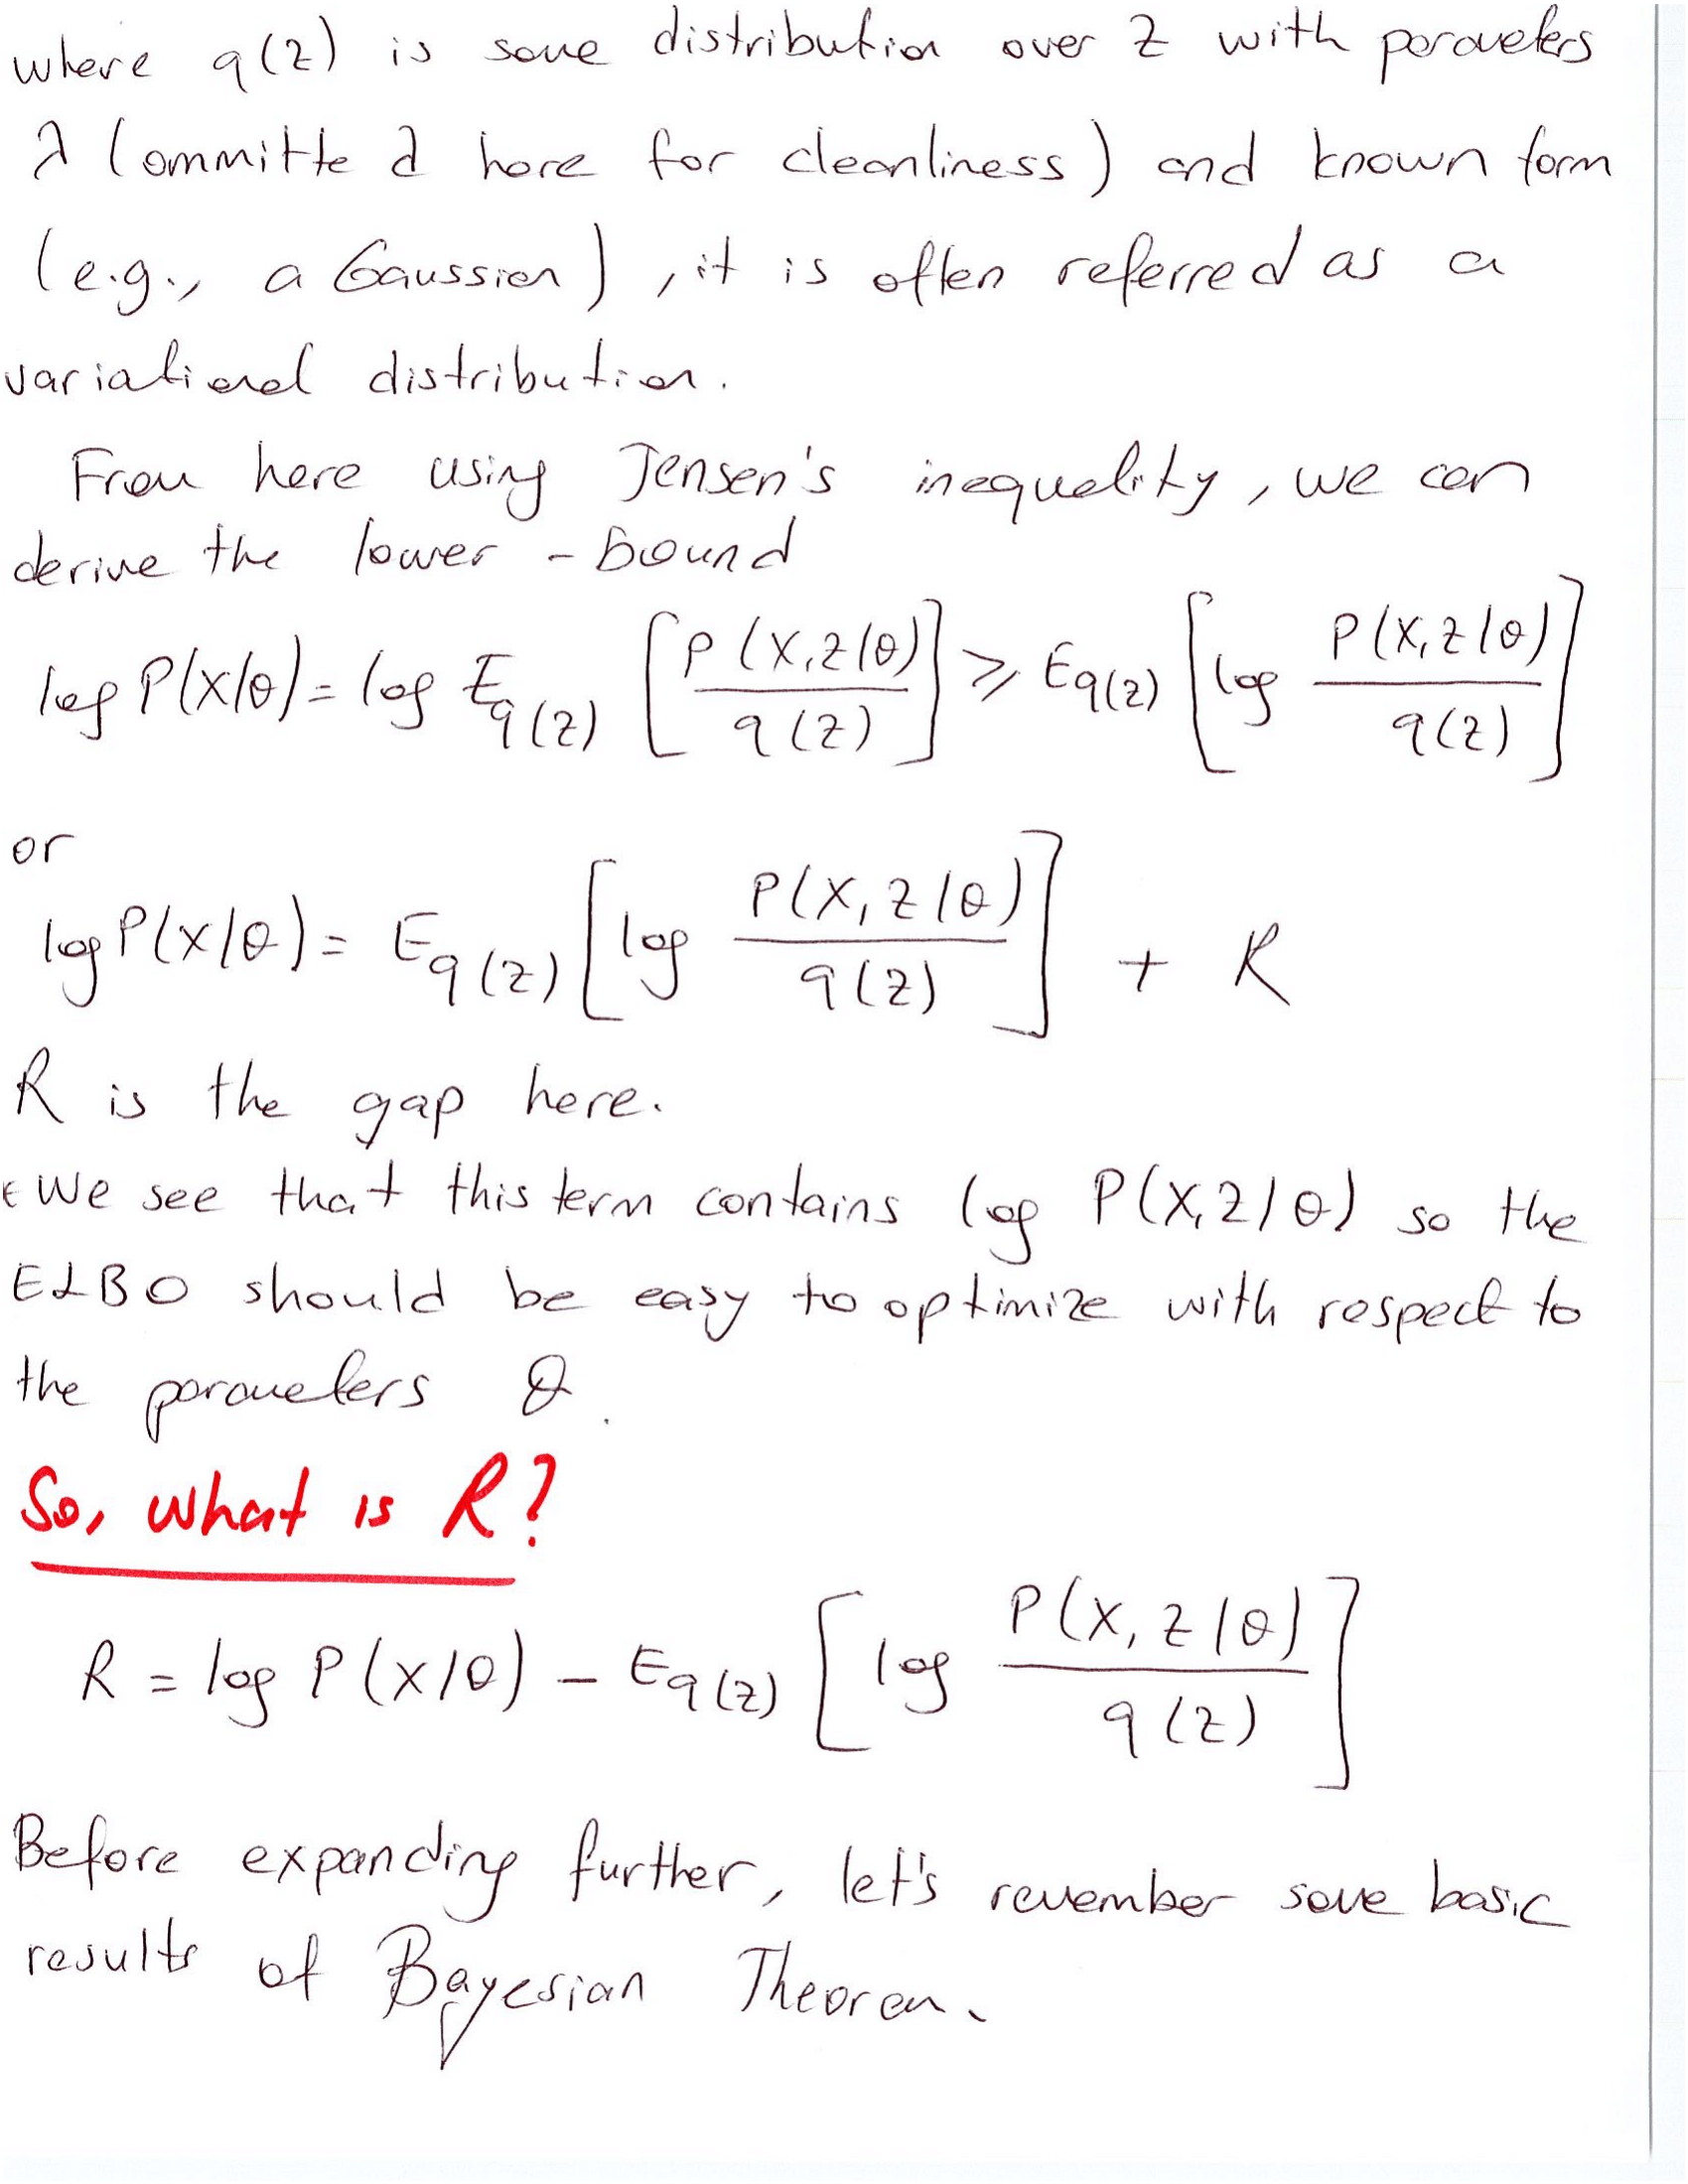 where q(z) is some distribution over z with parameters
λ (ommitted here for cleanliness) and known form
(e.g., a Gaussian), it is often referred as a
variational distribution.
From here using Jensen's inequality, we can
derive the lower-bound
log P(x|θ) = log E_q(z) [P(x,z|θ) / q(z)] ≥ E_q(z) [log P(x,z|θ) / q(z)]
or
log P(x|θ) = E_q(z) [log P(x,z|θ) / q(z)] + R
R is the gap here.
We see that this term contains log P(x,z|θ) so the
ELBO should be easy to optimize with respect to
the parameters θ.
So, what is R?
R = log P(x|θ) - E_q(z) [log P(x,z|θ) / q(z)]
Before expanding further, let's remember some basic
results of Bayesian Theorem.